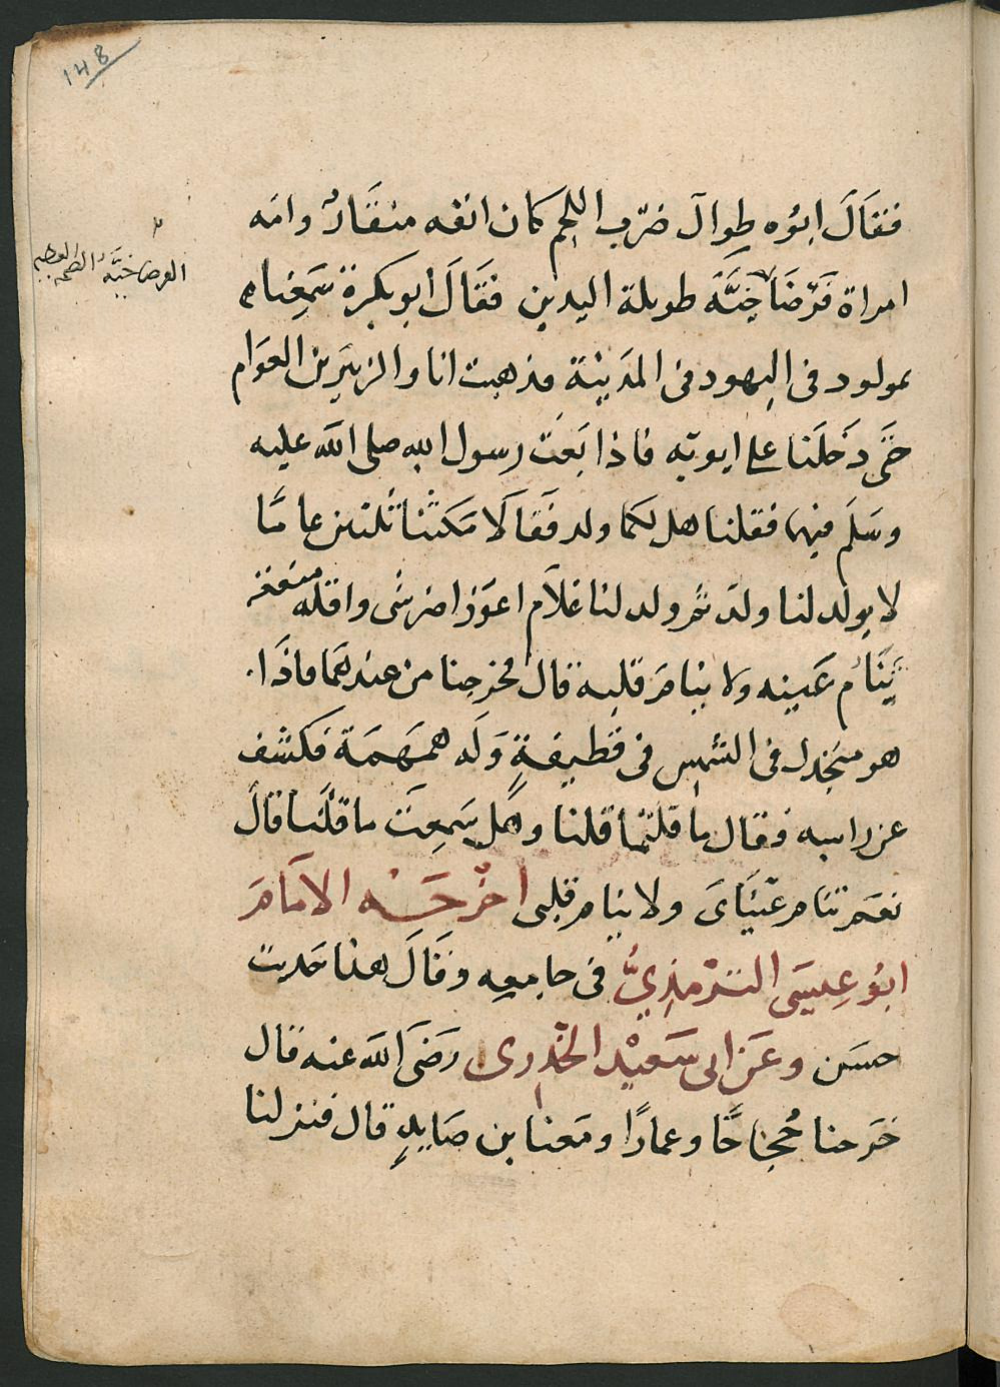 148
فقَالَ ابُوه طِوالَ ضرّب اللحم كان انفه منقَارٌ وامّه
امراة فَرْضَاخِيَّة طويلة اليدين فقَالَ ابو بكرة سَمِعْنا
بمولود فى اليهود فى المدَيْنة فذهبت انا والزبَيربن العوَام
حَتَّى دَخَلَنا على ابويه فاذا بَعَتُ رسول الله صلى الله عليه
وسَلَم فيهما فقلنا هل لكما ولد فَقَالَا مَكثْنا ثلثين عامًا
لا يولد لنا ولَد ثمر ولد لنا غلاَم اعوَر اضر شى واقله منفعة
يَنَامُ عَينه ولا ينامَ قلبه قال فخرجنا من عندهمَا فاذَا
هو منجدل فى الشمس فى قطيفةٍ وَلَه همهَمَة فكشف
عن راسه فقال ما قلتما قلنا وهَل سَمِعتَ ما قلْنا قالَ
نعَم تنام عَيْنَاىَ ولا ينام قلبى اخْرجَهْ الامَامَ
ابُو عِيسَى التَرْمذِيُّ فى جامعه وقَالَ هذا حَديث
حسَن وعَن ابى سَعيْد الخُدرى رَضَى الله عنه قال
خرَجنا حُجّاجًا وعمارًا ومَعنا بن صَايدٍ قال فنزلنا